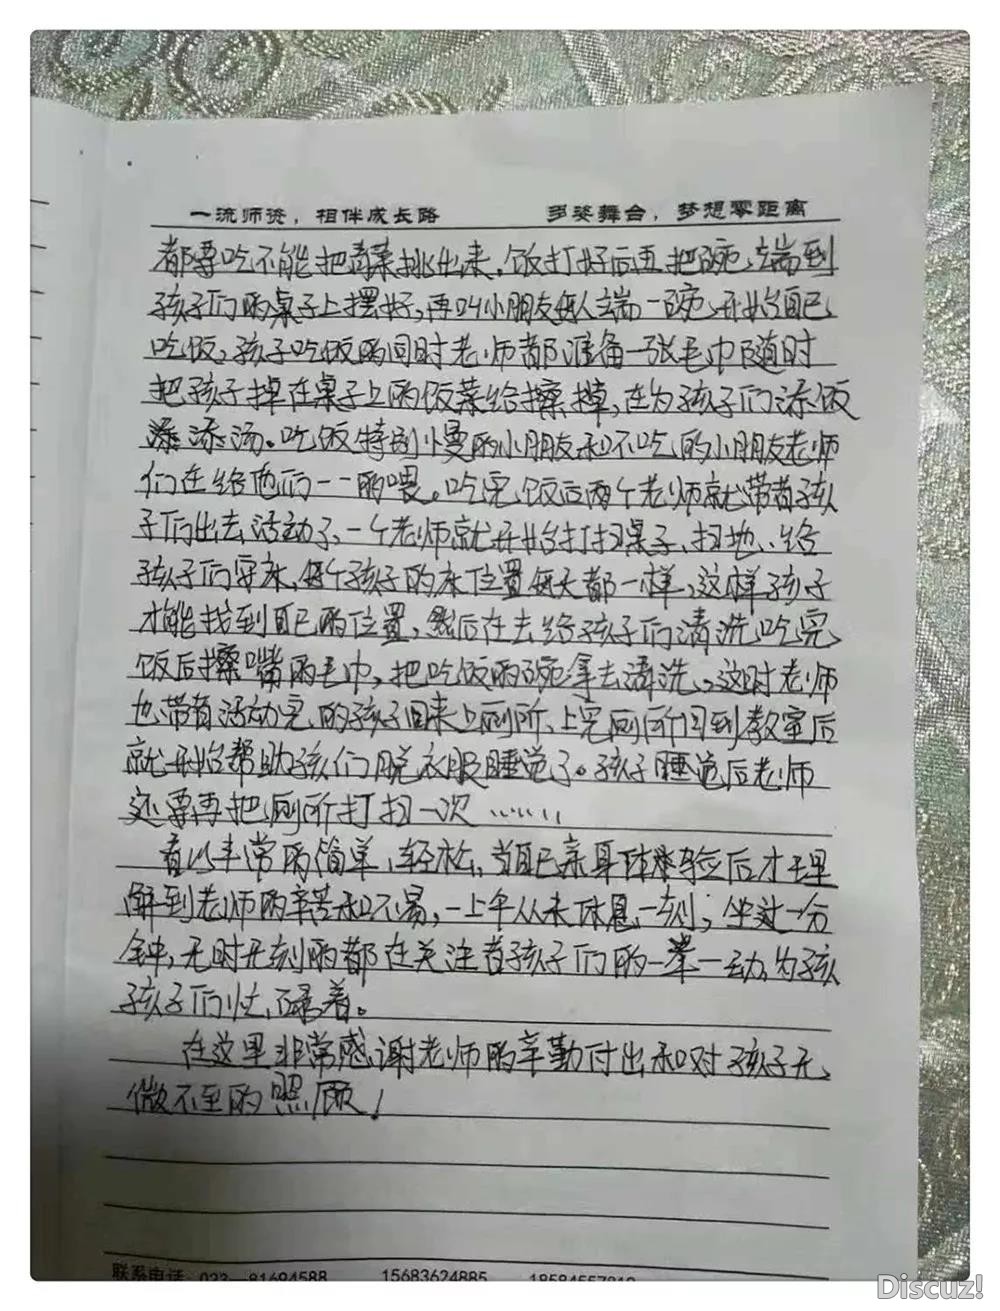 一流师资，相伴成长路 多姿舞台，梦想零距离
都要吃不能把青菜挑出来，饭打好后再把碗端到
孩子们的桌子上摆好，再叫小朋友每人端一碗开始自己
吃饭，孩子吃饭的同时老师都准备一张毛巾随时
把孩子掉在桌子上的饭菜给擦掉，在为孩子们添饭
添添汤。吃饭特别慢的小朋友和不吃的小朋友老师
们在给他们一一的喂。吃完饭后两个老师就带着孩
子们出去活动了，一个老师就开始打扫桌子、扫地、给
孩子们穿床，每个孩子的床位置每天都一样，这样孩子
才能找到自己的位置，然后在去给孩子们清洗吃完
饭后擦嘴的毛巾，把吃饭的碗拿去清洗，这时老师
也带着活动完的孩子回来上厕所，上完厕所回到教室后
就开始帮助孩们脱衣服睡觉了。孩子睡觉后老师
还要再把厕所打扫一次……
看似丰常的简单、轻松，当自己亲身体验后才理
解到老师的辛苦和不易，一上午从未休息一刻；坐过一分
钟，无时无刻的都在关注着孩子们的一举一动，为孩
孩子们忙碌着。
在这里非常感谢老师的辛勤付出和对孩子无
微不至的照顾！
联系电话：023—81694588 15683624885
Discuz!